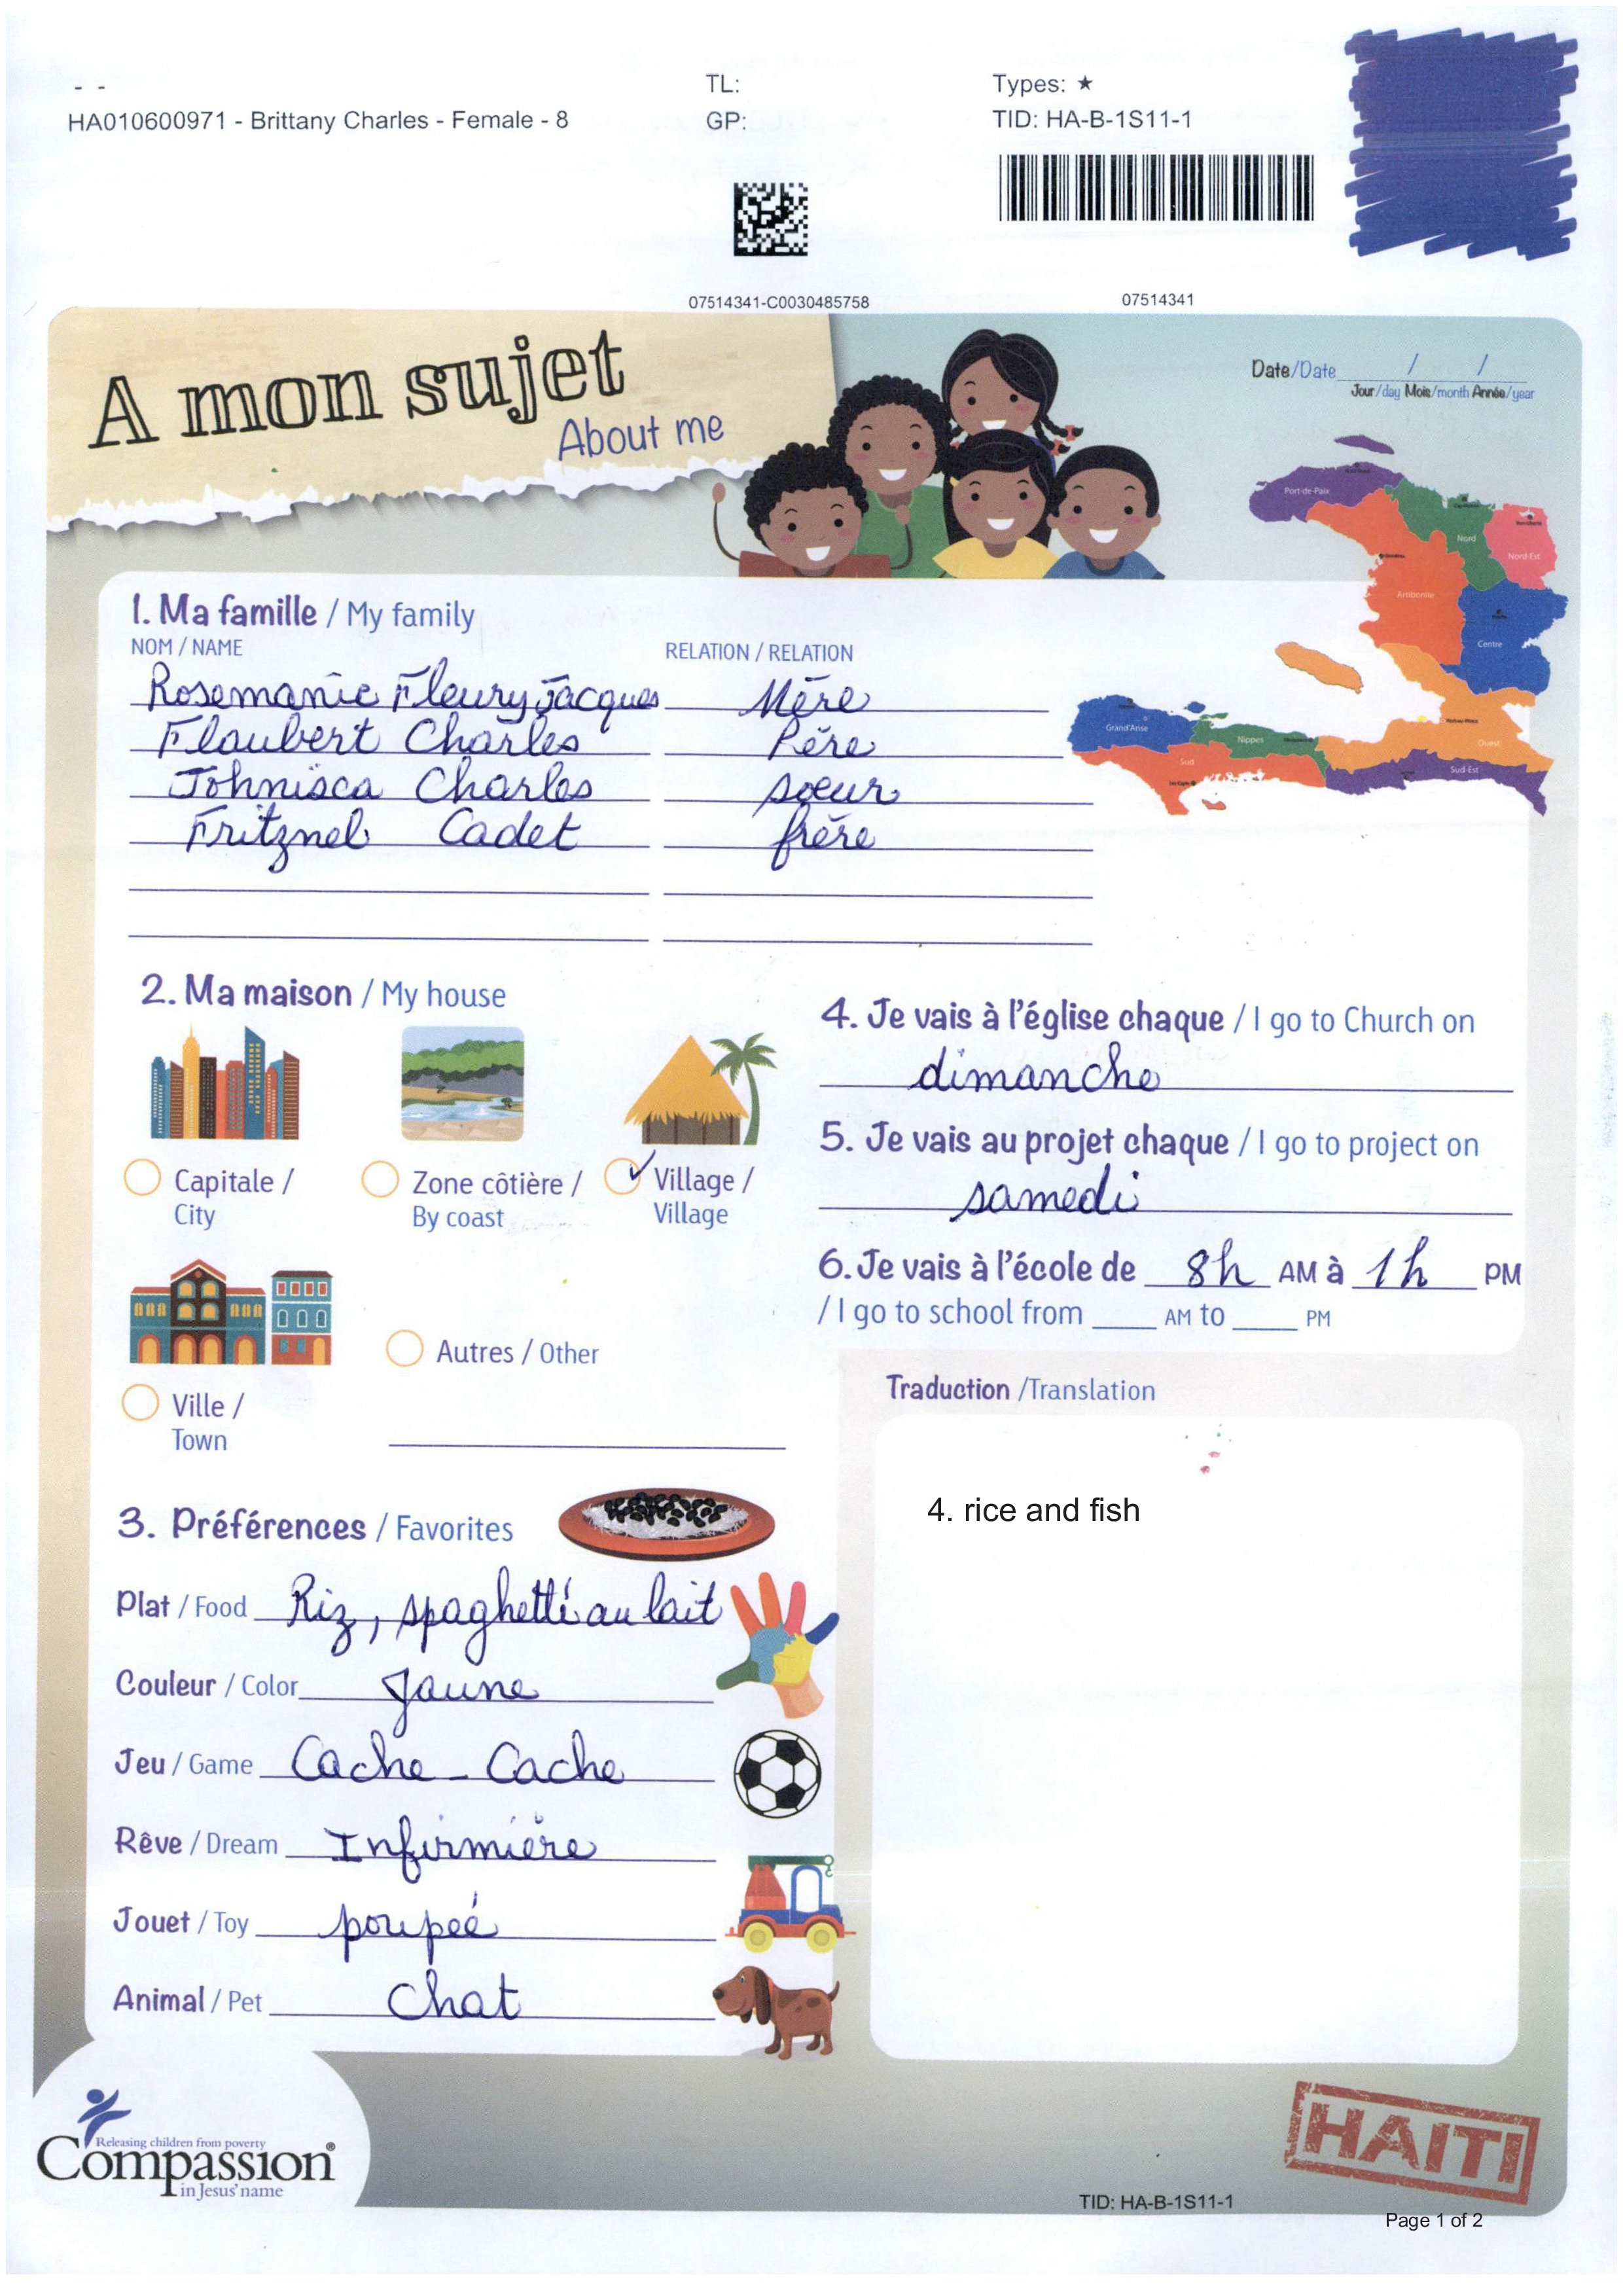 - -
HA010600971 - Brittany Charles - Female - 8
TL:
GP:
Types: ★
TID: HA-B-1S11-1
07514341-C0030485758
07514341
A mon sujet
About me
Date/Date / /
Jour/day Mois/month Année/year
Port-de-Paix
Nord
Nord-Est
Artibonite
Centre
Grand'Anse
Nippes
Ouest
Sud
Sud-Est
1. Ma famille / My family
NOM / NAME RELATION / RELATION
Rosemanie Fleury Jacques Mère
Flaubert Charles Père
Johnisca Charles soeur
Fritznel Cadet frère
2. Ma maison / My house
Capitale /
City
Zone côtière /
By coast
Village /
Village
Ville /
Town
Autres / Other
3. Préférences / Favorites
Plat / Food Riz, spaghetti au lait
Couleur / Color Jaune
Jeu / Game Cache - Cache
Rêve / Dream Infirmière
Jouet / Toy poupeé
Animal / Pet Chat
4. Je vais à l'église chaque / I go to Church on
dimanche
5. Je vais au projet chaque / I go to project on
samedi
6. Je vais à l'école de 8h AM à 1h PM
/ I go to school from AM to PM
Traduction /Translation
4. rice and fish
Releasing children from poverty
Compassion®
in Jesus' name
HAITI
TID: HA-B-1S11-1
Page 1 of 2